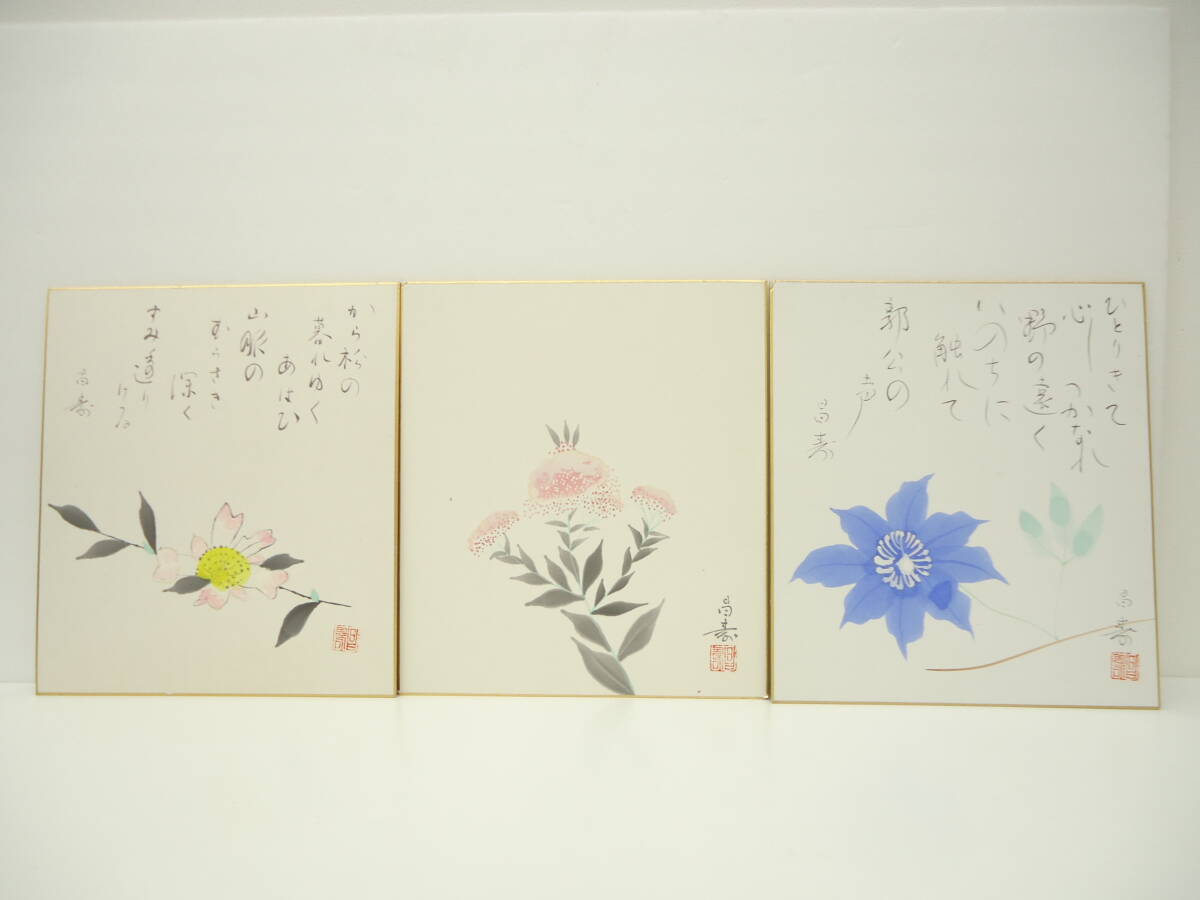 から松の
暮れゆく
あはひ
山脈の
むらさき
深く
すみ透り
ける
昌寿
昌寿
ひとりきて
心しつかなれ
野の遠く
いのちに
触れて
郭公の
声
昌寿
昌寿